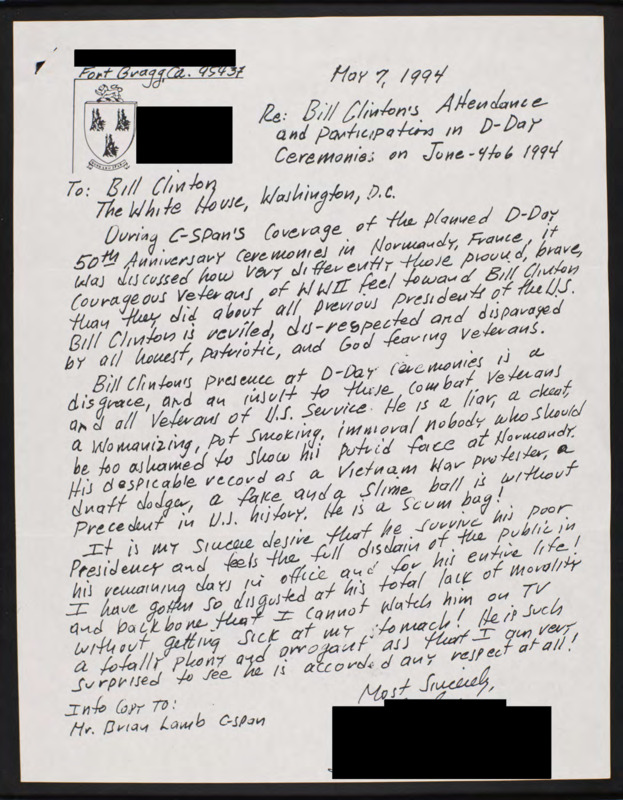 Fort Bragg, Ca. 95437
May 7, 1994
Re: Bill Clinton's Attendance
and participation in D-Day
Ceremonies on June-4to6 1994
To: Bill Clinton
The White House, Washington, D.C.
During C-SPAN'S Coverage of the planned D-Day
50th Anniversary Ceremonies in Normandy, France, it
was discussed how very differently those proud, brave,
courageous Veterans of WWII feel toward Bill Clinton
than they did about all previous presidents of the U.S.
Bill Clinton is reviled, dis-respected and disparaged
by all honest, patriotic, and God fearing veterans.
Bill Clinton's presence at D-Day Ceremonies is a
disgrace, and an insult to these combat Veterans
and all Veterans of U.S. Service. He is a liar, a cheat,
a womanizing, pot smoking, immoral nobody who should
be too ashamed to show his putrid face at Normandy.
His despicable record as a Vietnam War protester, a
draft dodger, a fake and a slime ball is without
precedent in U.S. history. He is a scum bag!
It is my sincere desire that he survive his poor
Presidency and feels the full disdain of the public in
his remaining days in office and for his entire life!
I have gotten so disgusted at his total lack of morality
and backbone that I cannot watch him on TV
without getting sick at my stomach! He is such
a totally phony and arrogant ass that I am very
surprised to see he is accorded any respect at all!
Most Sincerely,
Info Copy To:
Mr. Brian Lamb C-span